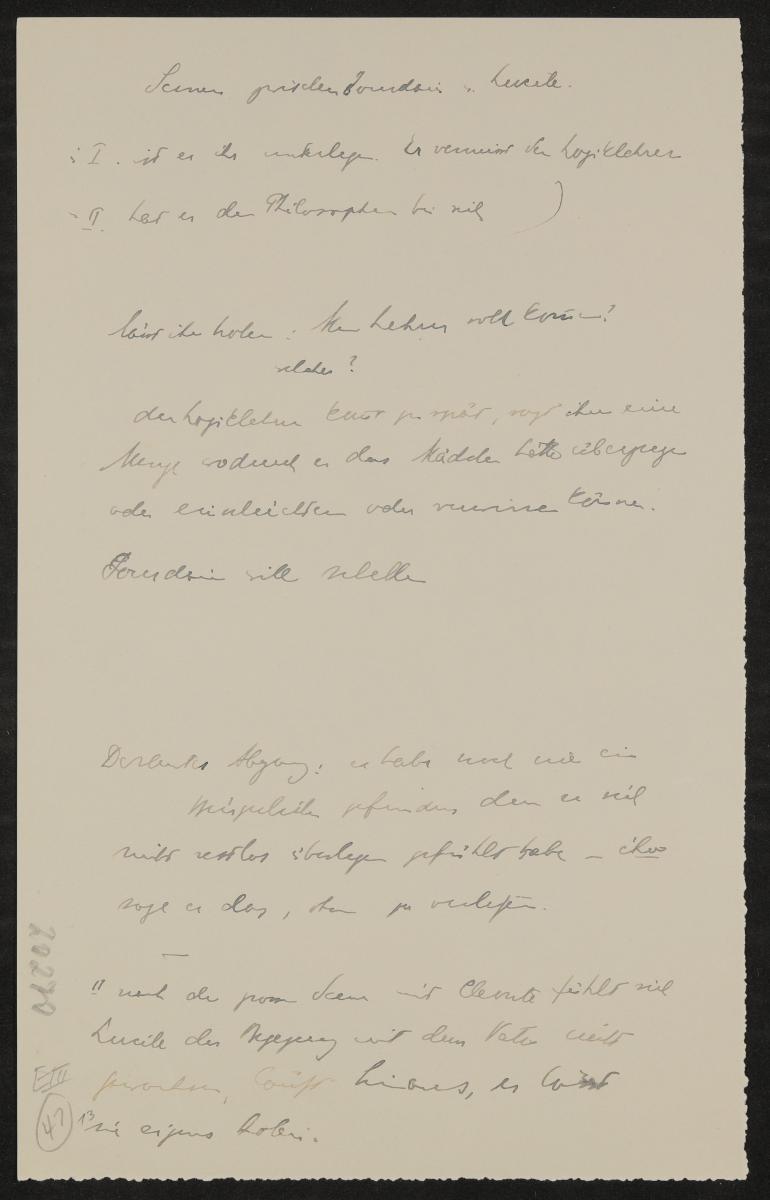 Scenen zwischen Jourdain u. Lucile.
: I. ist er ihr unterlegen. Er vermisst den Logiklehrer
II hat er den Philosophen bei sich )
lässt ihn holen : Mein Lehrer soll komen!
welcher?
der Logiklehrer kommt zu spät, sagt ihm eine
Menge wodurch er das Mädchen hätte überzeugen
oder einleichtern oder verwirren können.
Jourdain will schellen
Dorantes Abgang: er habe noch nie ein
gefunden dem er sich
nicht restlos überlegen gefühlt habe – ihm
sage er das, ohne zu verletzen.
—
II nach der grossen Scene mit Cleonte fühlt sich
Lucile der Begegnung mit dem Vater nicht
gewachsen, läuft hinaus, er lässt
sie eigens holen.
20290
E III
13
47